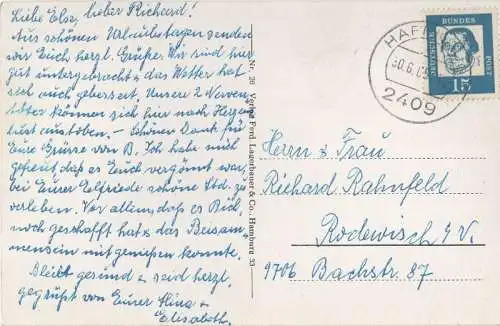 Liebe Elsy, lieber Richard!
Aus schönen Urlaubstagen senden
wir Euch herzl. Grüße. Wir sind hier
gut untergebracht & das Wetter hat
sich auch gebessert. Unsere 2 Nerven-
töter können sich hier nach Herzens-
lust austoben. – Schönen Dank für
Eure Grüsse von B. Ich habe mich
gefreut, daß es Euch vergönnt war,
bei Eurer Elfriede schöne Std. zu
verleben. Vor allem, daß es Rich.
noch geschafft hat & das Beisam-
mensein mit genießen konnte.
Bleibt gesund & seid herzl.
gegrüßt von Eurer &
Elisabeth.
Nr. 26 Verlag Ferd. Lagerbauer & Co., Hamburg 33
30.6.
2409
DEUTSCHE BUNDES POST
15
Herrn & Frau
Richard Rahnfeld
Rodewisch i/V.
9706 Bachstr. 87